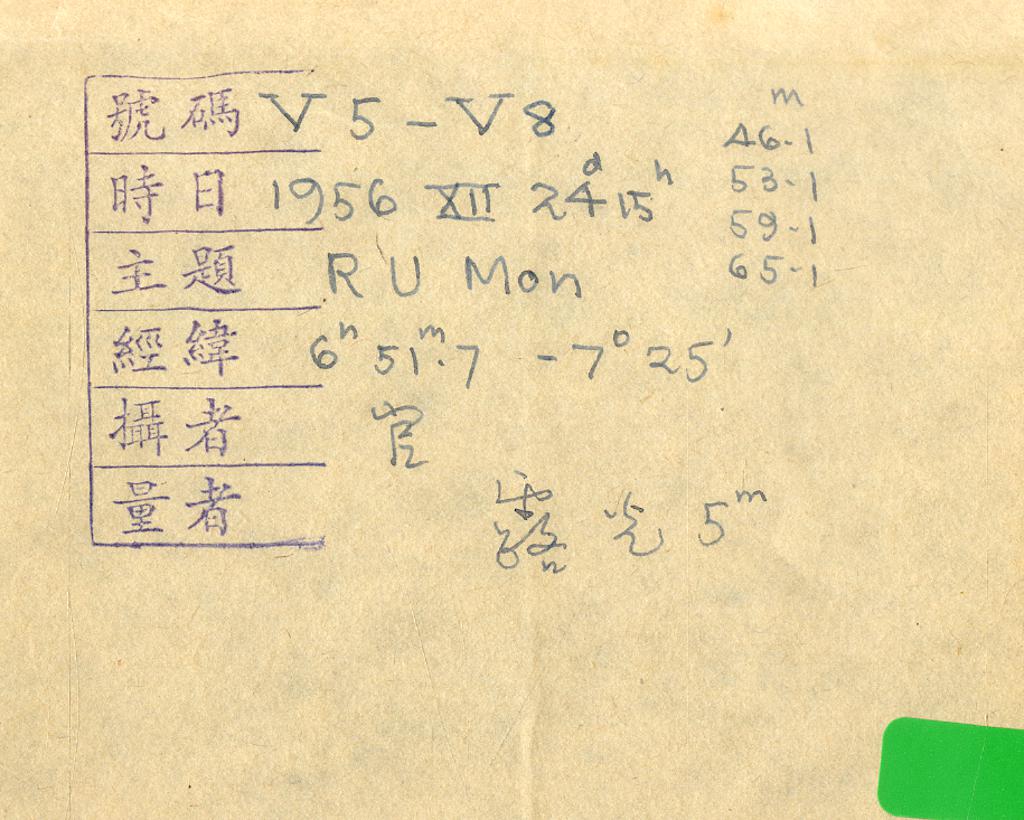 號碼 V5-V8
時日 1956 XII 24ᵈ 15ʰ
m
46.1
53.1
59.1
65.1
主題 RU Mon
經緯 6ʰ 51ᵐ.7 -7° 25'
攝者
量者
露光 5ᵐ